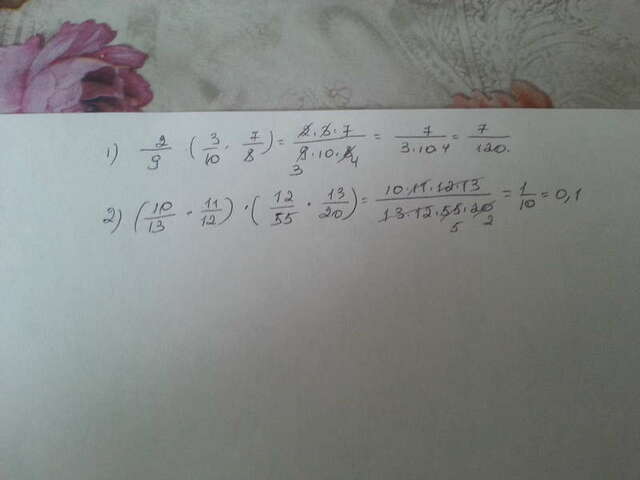 1) 2/9 (3/10 · 7/8) = 2·3·7/9·10·8 3 4 = 7/3·10·4 = 7/120.
2) (10/13 · 11/12) · (12/55 · 13/20) = 10·11·12·13/13·12·55·20 5 2 = 1/10 = 0,1